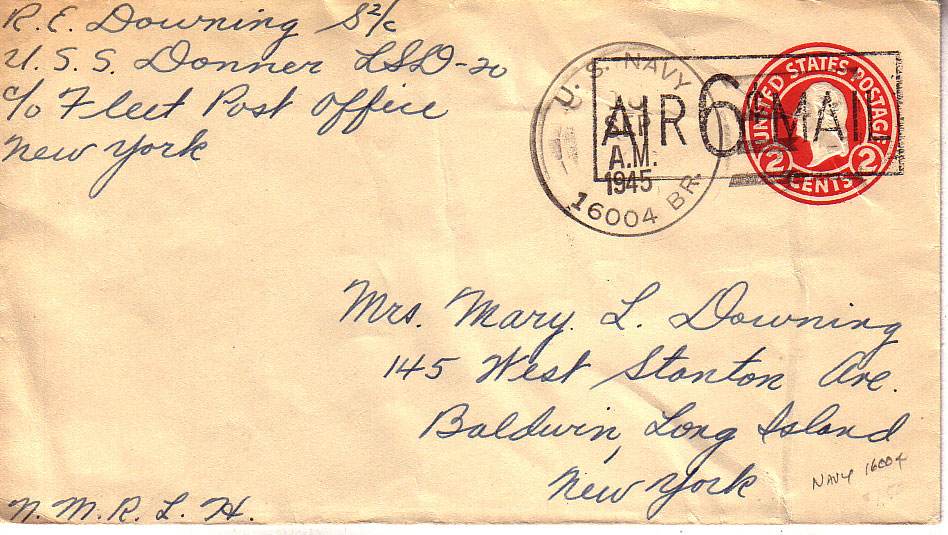 R. E. Downing S2/c
U. S. S. Donner LSD-20
c/o Fleet Post Office
New York
U. S. NAVY
SEP
A.M.
1945
16004 BR.
AIR 6¢ MAIL
UNITED STATES POSTAGE
2 CENTS 2
Mrs. Mary L. Downing
145 West Stanton Ave.
Baldwin, Long Island
New York
NAVY 16004
N. M. R. L. H.